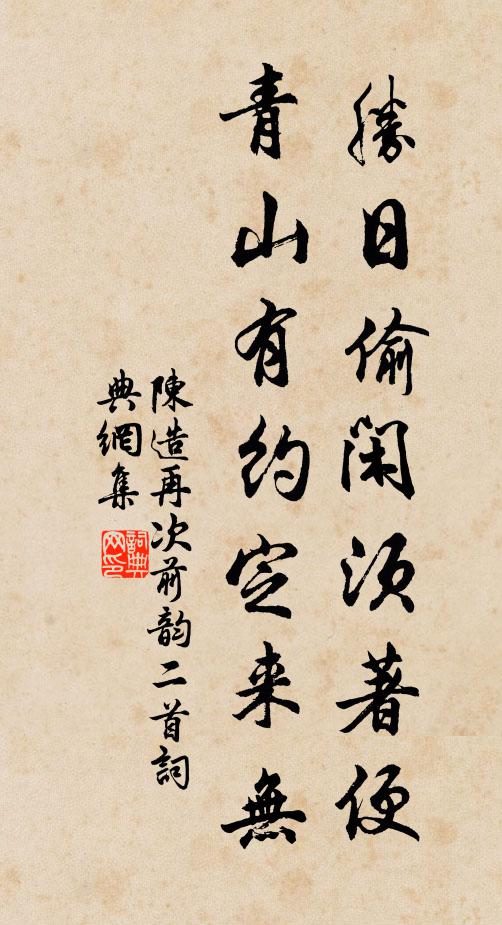 勝日偷閑須著便
青山有約定来無
陳造再次前韵二首詞
典網集
詞典
网印